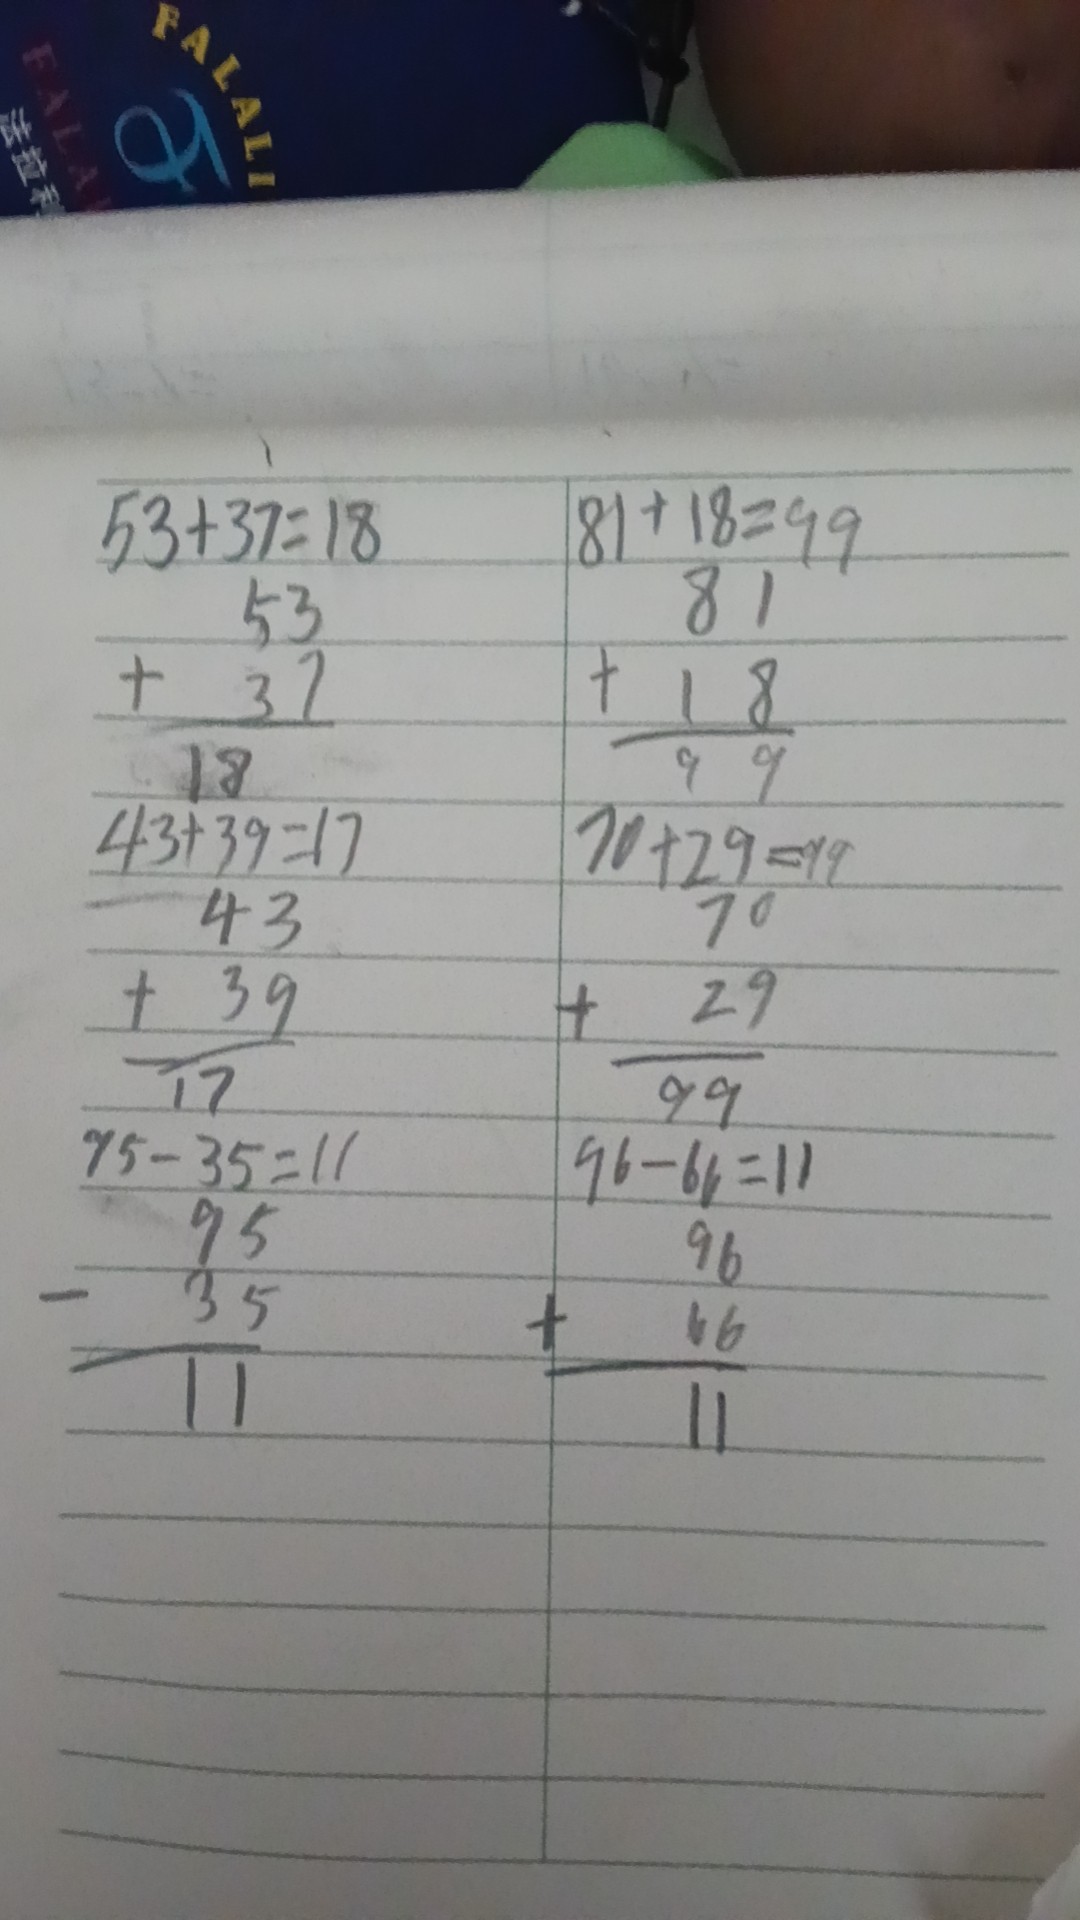 FALALI
FALALI
53+37=18
53
+ 37
18
43+39=17
43
+ 39
17
95-35=11
95
- 35
11
81+18=99
81
+ 18
99
70+29=99
70
+ 29
99
96-66=11
96
+ 66
11